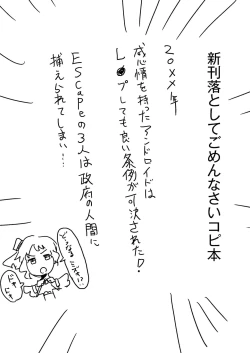 新刊落としてごめんなさいコピ本
20××年
感情を持ったアンドロイドは
レ●プしても良い条例が可決された!
EScapeの3人は政府の人間に
捕えられてしまい…
どーなる